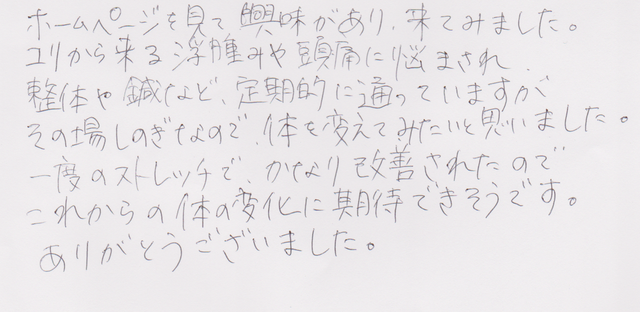 ホームページを見て興味があり、来てみました。
コリから来る浮腫みや頭痛に悩まされ
整体や鍼など、定期的に通っていますが
その場しのぎなので、体を変えてみたいと思いました。
一度のストレッチで、かなり改善されたので
これからの体の変化に期待できそうです。
ありがとうございました。